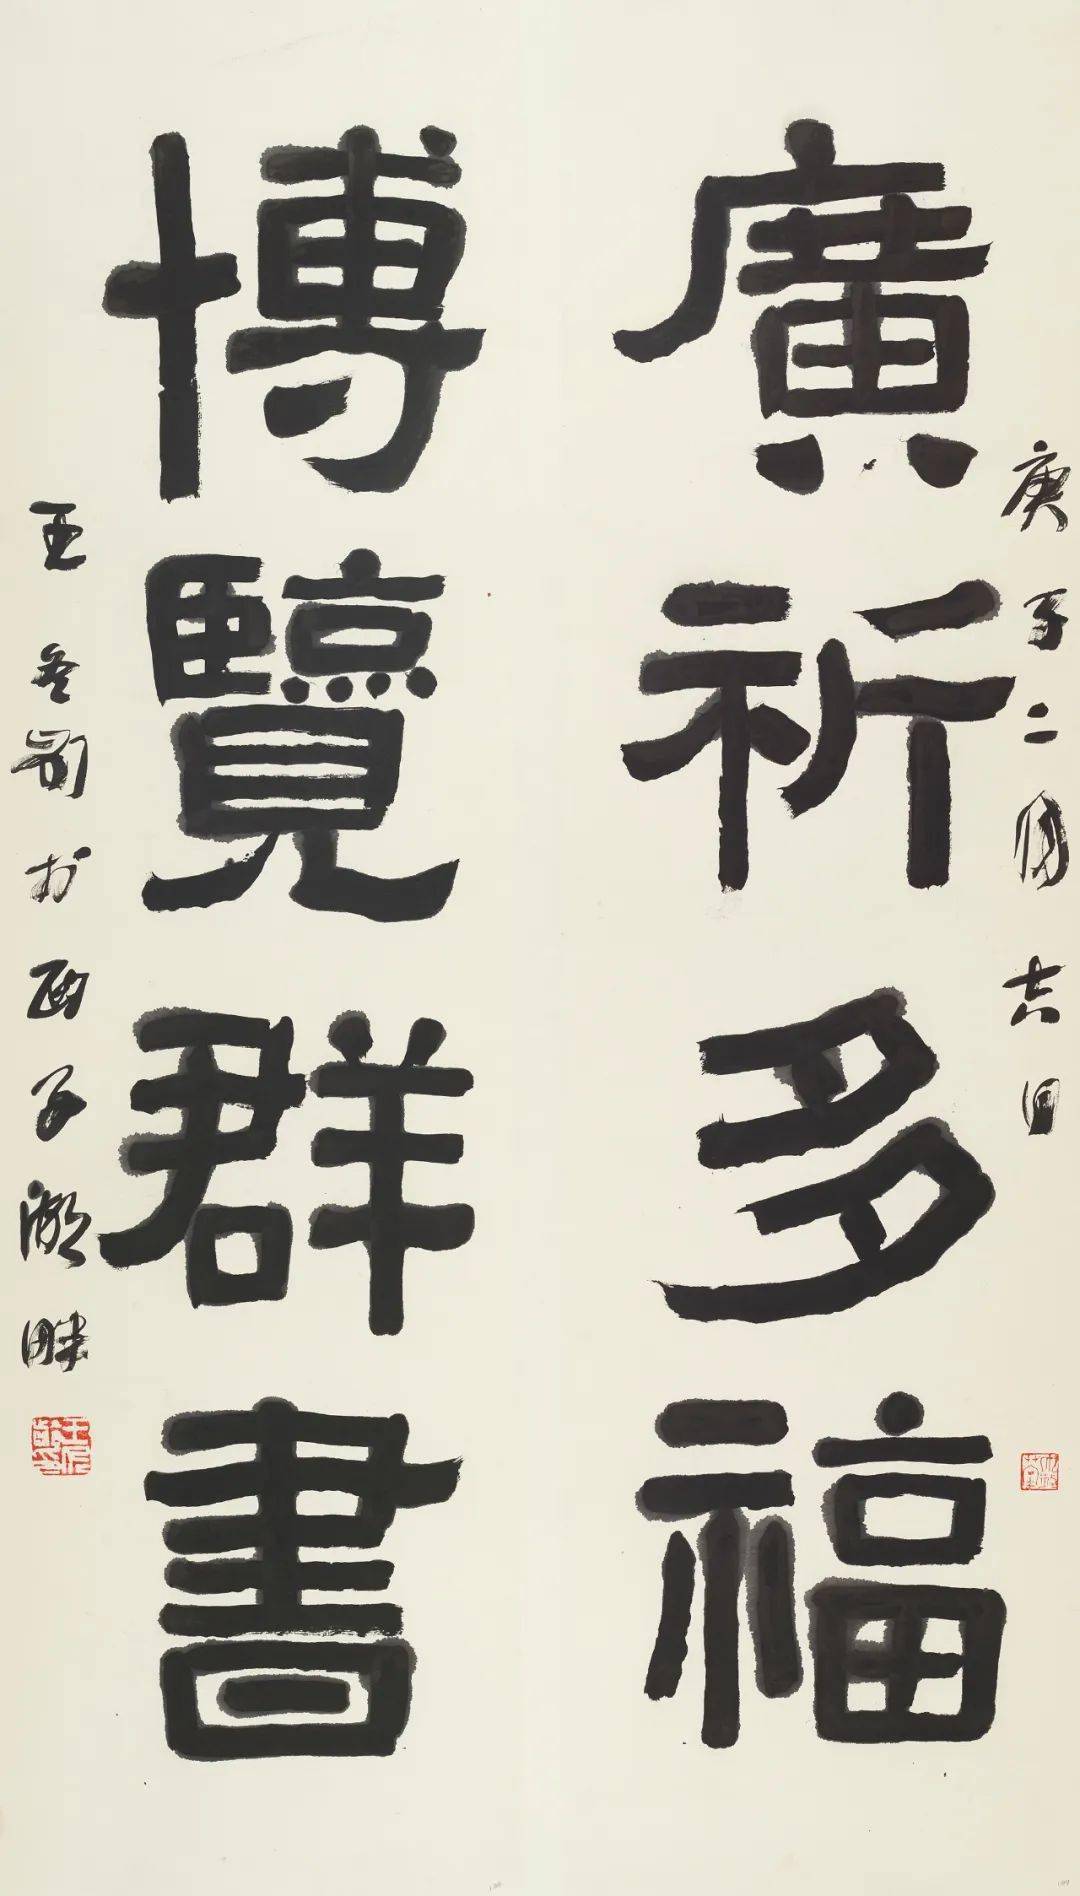 庚子二月吉日
廣祈多福
博覽群書
王 於西子湖畔